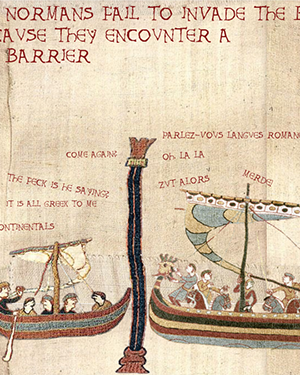 NORMANS FAIL TO INVADE THE
CAUSE THEY ENCOUNTER A
BARRIER
PARLEZ-VOUS LANGUES ROMAN
COME AGAIN?
OH LA LA
THE FECK IS HE SAYING?
ZUT ALORS
MERDE
IT IS ALL GREEK TO ME
CONTINENTALS